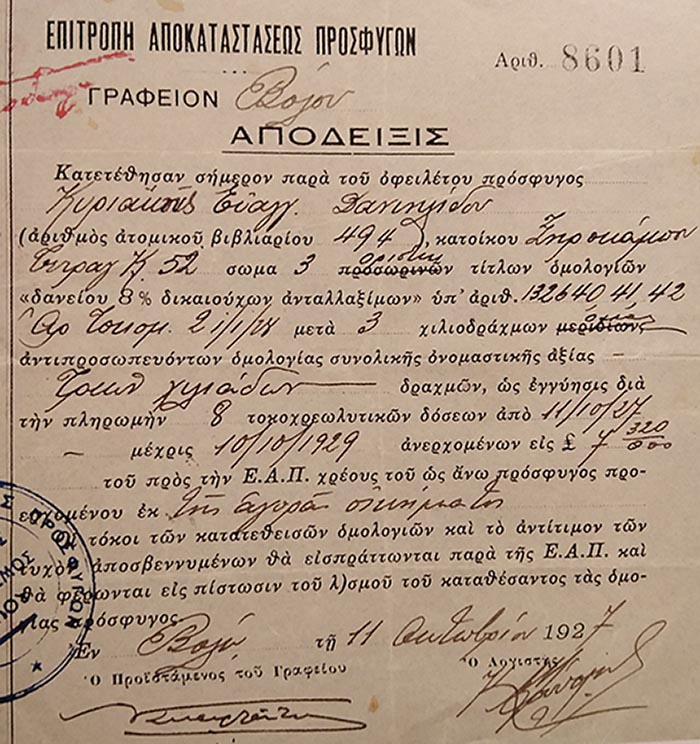 ΕΠΙΤΡΟΠΗ ΑΠΟΚΑΤΑΣΤΑΣΕΩΣ ΠΡΟΣΦΥΓΩΝ
Αριθ. 8601
ΓΡΑΦΕΙΟΝ Βόλου
ΑΠΟΔΕΙΞΙΣ
Κατετέθησαν σήμερον παρὰ τοῦ ὀφειλέτου πρόσφυγος
Κυριακῆς Εὐαγγ. Δανιηλίδου
(ἀριθμὸς ἀτομικοῦ βιβλιαρίου 494), κατοίκου Ξηροκάμπου
Τετραγ. 52 σωμα 3 προσωρινῶν ὁριστικ τίτλων ὁμολογιῶν
«δανείου 8% δικαιούχων ἀνταλλαξίμων» ὑπ' ἀριθ. 132640, 41, 42
2 1/1/28 μετὰ 3 χιλιοδράχμων
ἀντιπροσωπευόντων ὁμολογίας συνολικῆς ὀνομαστικῆς ἀξίας –
Τριῶν χιλιάδων — δραχμῶν, ὡς ἐγγύησις διὰ
τὴν πληρωμὴν 8 τοκοχρεωλυτικῶν δόσεων ἀπὸ 11/10/27
– μέχρις 10/10/1929 ἀνερχομένων εἰς £ 7 320/000
τοῦ πρὸς τὴν Ε.Α.Π. χρέους τοῦ ὡς ἄνω πρόσφυγος προ-
ερχομένου ἐκ τῆς ἀγορᾶς οἰκήματος
Οἱ τόκοι τῶν κατατεθεισῶν ὁμολογιῶν καὶ τὸ ἀντίτιμον τῶν
τυχὸν ἀποσβεννυμένων θὰ εἰσπράττωνται παρὰ τῆς Ε.Α.Π. καὶ
θὰ φέρωνται εἰς πίστωσιν τοῦ λ)σμοῦ τοῦ καταθέσαντος τὰς ὁμο-
ίας πρόσφυγος
Ἐν Βόλῳ τῇ 11 Ὀκτωβρίου 1927
Ὁ Προϊστάμενος τοῦ Γραφείου
Ὁ Λογιστὴς
ΠΡΟΣΦΥΓΩΝ